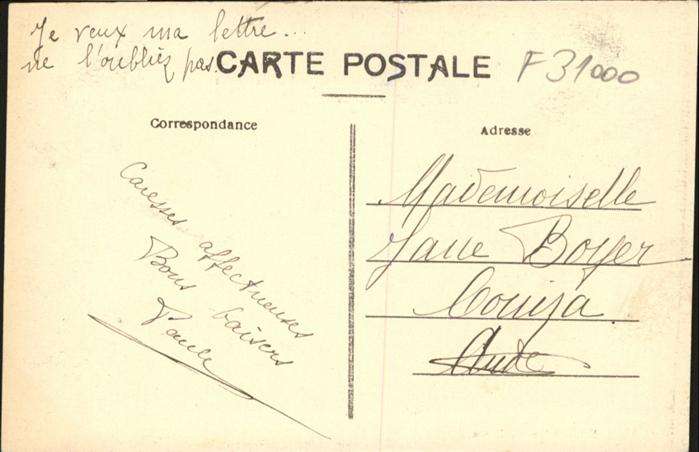 Je veux ma lettre...
ne l'oubliez pas
CARTE POSTALE
F 31000
Correspondance
Adresse
Caresses affectueuses
Bons baisers
Paule
Mademoiselle
Jane Boyer
Couiza
Aude